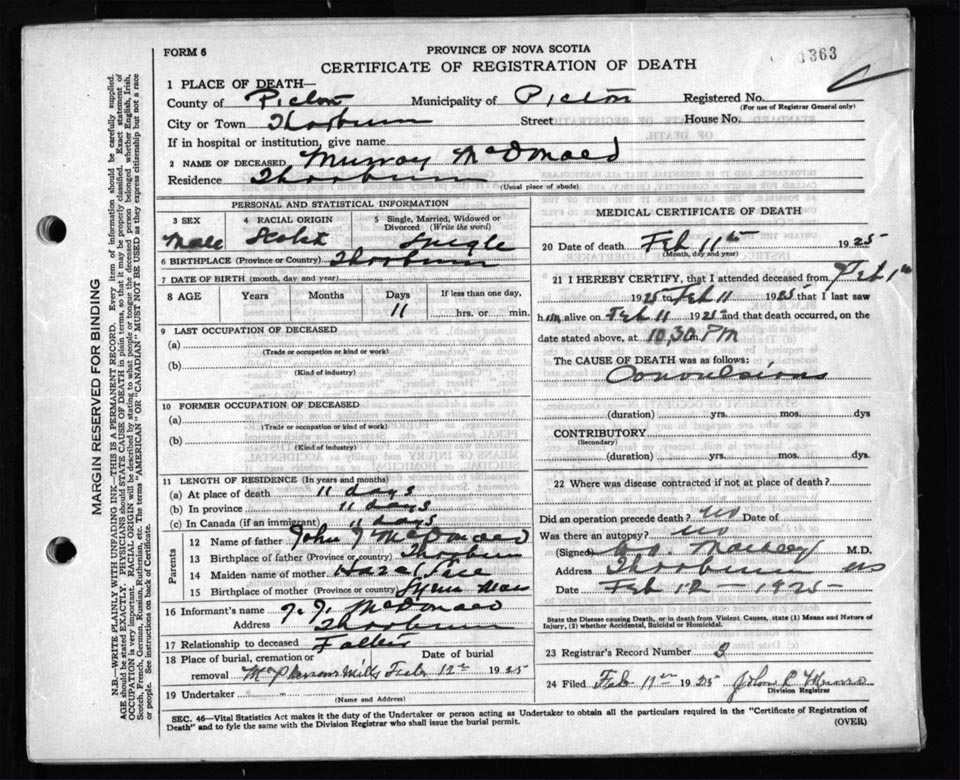 FORM 6
PROVINCE OF NOVA SCOTIA
1363
CERTIFICATE OF REGISTRATION OF DEATH
1 PLACE OF DEATH—
County of Pictou Municipality of Pictou Registered No.
(For use of Registrar General only)
City or Town Thorburn Street House No.
If in hospital or institution, give name
2 NAME OF DECEASED Murray McDonald
Residence Thorburn
(Usual place of abode)
PERSONAL AND STATISTICAL INFORMATION
3 SEX 4 RACIAL ORIGIN 5 Single, Married, Widowed or
Divorced (Write the word)
Male Scotch Single
6 BIRTHPLACE (Province or Country) Thorburn
7 DATE OF BIRTH (month, day and year)
8 AGE Years Months Days If less than one day,
11 hrs. or min.
9 LAST OCCUPATION OF DECEASED
(a)
(Trade or occupation or kind or work)
(b)
(Kind of industry)
10 FORMER OCCUPATION OF DECEASED
(a)
(Trade or occupation or kind or work)
(b)
(Kind of industry)
11 LENGTH OF RESIDENCE (In years and months)
(a) At place of death 11 days
(b) In province 11 days
(c) In Canada (if an immigrant) 11 days
Parents
12 Name of father John J McDonald
13 Birthplace of father (Province or country) Thorburn
14 Maiden name of mother Hazel
15 Birthplace of mother (Province or country) Mass
16 Informant's name J. J. McDonald
Address Thorburn
17 Relationship to deceased Father
18 Place of burial, cremation or Date of burial
removal McPhersons Mills Feb 12th 1925
19 Undertaker
(Name and Address)
MEDICAL CERTIFICATE OF DEATH
20 Date of death Feb 11th 1925
(Month, day and year)
21 I HEREBY CERTIFY, that I attended deceased from Feb 1st
1925 to Feb 11 1925 that I last saw
him alive on Feb 11 1925 and that death occurred, on
date stated above, at 10.30 m PM
The CAUSE OF DEATH was as follows:
Convulsions
(duration) yrs. mos. dys
CONTRIBUTORY
(Secondary)
(duration) yrs. mos. dys.
22 Where was disease contracted if not at place of death?
Did an operation precede death? No Date of
Was there an autopsy? No
(Signed) M.D.
Address Thorburn NS
Date Feb 12 - 1925
State the Disease causing Death, or in death from Violent Causes, state (1) Means and Nature of
Injury, (2) whether Accidental, Suicidal or Homicidal.
23 Registrar's Record Number 3
24 Filed Feb 1925 John
Division Registrar
SEC. 46—Vital Statistics Act makes it the duty of the Undertaker or person acting as Undertaker to obtain all the particulars required in the "Certificate of Registration of
Death" and to fyle the same with the Division Registrar who shall issue the burial permit.
(OVER)
MARGIN RESERVED FOR BINDING
N.B.—WRITE PLAINLY WITH UNFADING INK—THIS IS A PERMANENT RECORD. Every item of information should be carefully supplied.
AGE should be stated EXACTLY. PHYSICIANS should STATE CAUSE OF DEATH in plain terms, so that it may be properly classified. Exact statement of
OCCUPATION is very important. RACIAL ORIGIN will be described by stating to what people or tongue the deceased person belonged whether English, Irish,
Scotch, French, German, Russian, Ruthenian, etc. The terms "AMERICAN" OR "CANADIAN" MUST NOT BE USED as they express citizenship but not a race
or people. See instructions on back of Certificate.